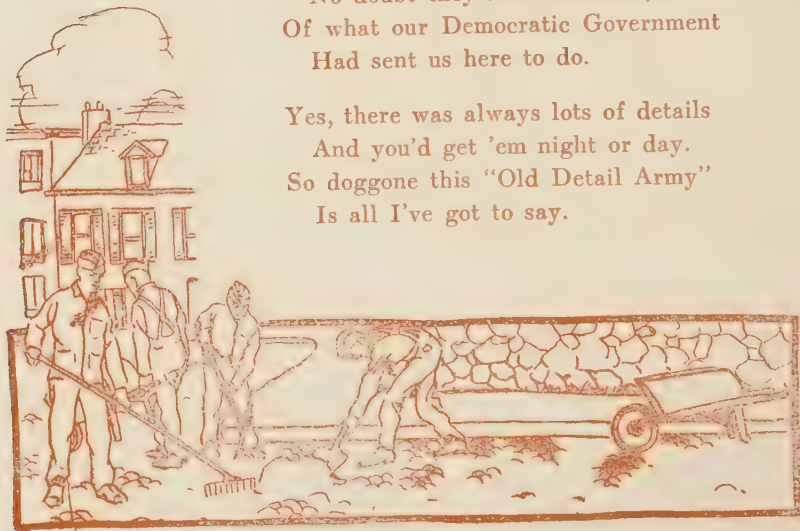 No doubt they
Of what our Democratic Government
Had sent us here to do.
Yes, there was always lots of details
And you'd get 'em night or day.
So doggone this "Old Detail Army"
Is all I've got to say.